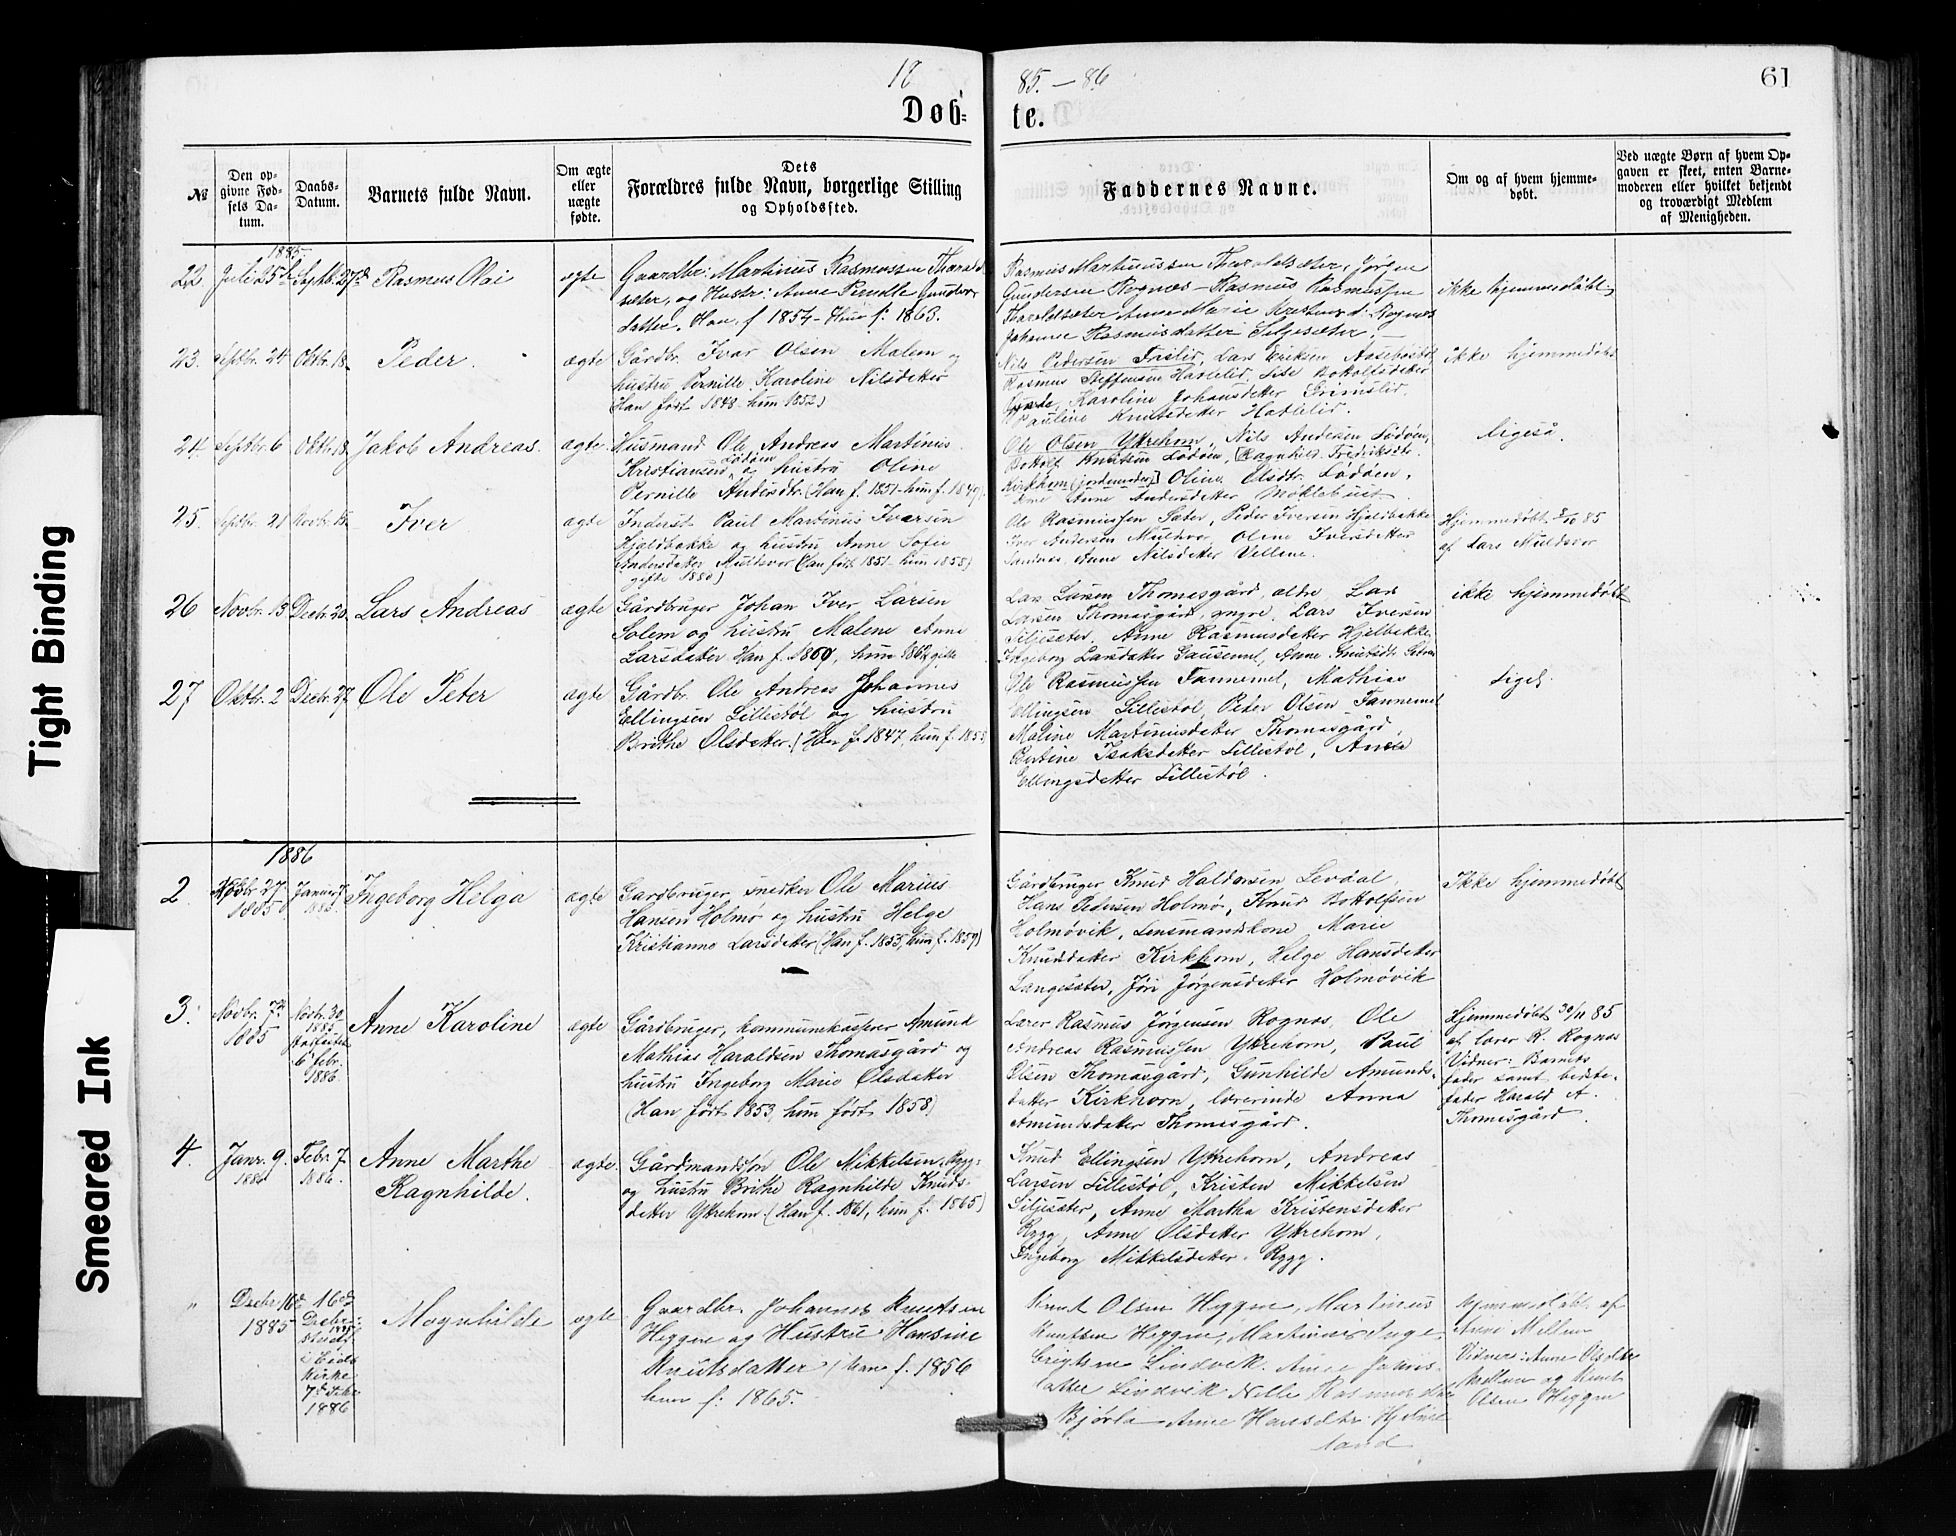 18
85. – 86
61
Døb=
te.
№
Den op-
givne Fød-
sels Da-
tum.
Daabs-
Datum.
Barnets fulde Navn.
Om ægte
eller
uægte
fødte.
Dets
Forældres fulde Navn, borgerlige Stilling
og Opholdssted.
Faddernes Navne.
Om og af hvem hjemme-
døbt.
Ved uægte Børn af hvem Op-
gaven er skeet, enten Barne-
moderen eller hvilket bekjendt
og troværdigt Medlem
af Menigheden.
1885
22 Juli 25de Septbr. 27de Rasmus Olai ægte
Gaardbr: Martinus Rasmussen Tharald
sæter, og Hustr: Anne Pernille Gunder
datter. Han f 1854 – Hun f: 1863.
Rasmus Martinussen Tharaldsæter, Jørgen
Gundersen Rognæs – Rasmus Rasmussen
Tharaldsæter Anne Marie Krestens d. Rognæs
Johanne Rasmusdatter Siljesæter. –
ikke hjemmedøbt
23. Septbr. 24 Oktbr. 18. Peder. ægte
Gårdbr. Ivar Olsen Malem og
hustru Pernille Karoline Nilsdatter
Han født 1848 – hun 1852)
Nils Pedersen Frislid, Lars Eriksen Aasebøstøl
Rasmus Steffensen Havlelid, Lise Bottolfsdatter
Karoline Johansdatter Grimslid.
Pauline Knutsdatter Hatlelid.
ikke hjemmedøbt
24. Septbr. 6 Oktbr. 18. Jakob Andreas. ægte
Husmand Ole Andreas Martinus
Kristiansen Lødøen og hustru Oline
Pernille Andersdtr. (Han f. 1851 – hun f. 1849).
Ole Olsen Yttrehorn, Nils Andersen Lødøen,
Bottolf Knutsen Lødøen, [Ragnhild Fredriksdtr.
Kirkhorn (jordmoder)] Oline Olsdtr. Lødøen.
Anne Andersdatter Møklebust.
ligeså.
25. Septbr. 21 Novbr. 15. Iver ægte
Inderst Paul Martinus Iversen
Hjeldbakke og hustru Anne Sofie
Andersdatter Muldsvor (Han født 1851 – hun 1858)
gifte 1880)
Ole Rasmussen Sæter, Peder Iversen Hjeldbakke
Iver Andersen Mulsvor, Oline Iversdatter
Sandnæs Anne Nilsdatter Vellene.
Hjemmedøbt 2/10 85
af Lars Muldsvor
26 Novbr. 13 Decbr. 20. Lars Andreas ægte
Gårdbruger Johan Iver Larsen
Solem og hustru Malene Anne
Larsdatter Han f. 1860, hun 1862 gifte
Lars Larsen Thomasgård, ældre, Lars
Larsen Thomasgård, yngre, Lars Iversen
Siljesæter, Anne Rasmusdatter Hjelbakke
Ingeborg Larsdatter Gausemel, Anne Knutsdt.
ikke hjemmedøbt
27 Oktbr. 2 Decbr. 27. Ole Peter ægte
Gårdbr. Ole Andreas Johannes
Ellingsen Lillestøl og hustru
Brithe Olsdatter. (Han f. 1847, hun f. 1853
Ole Rasmussen Tannemel, Mathias
Ellingsen Lillestøl, Peder Olsen Tannemel
Maline Martinusdatter Thomasgård
Bertine Isaksdatter Lillestøl, Anne
Ellingsdatter Lillestøl.
Liges.
1886
2 Novbr 27
1885 Januar 7.
1886. Ingeborg Helga ægte
Gardbruger, snedker Ole Marius
Hansen Holmø og hustru Helge
Kristianne Larsdatter (Han f. 1855, hun f. 1859)
Gårdbruger Knud Haldorsen Levdal,
Hans Pedersen Holmø, Knud Bottolfsen
Holmøvik, Lensmandskone Marie
Knuddatter Kirkhorn, Helge Hansdatter
Langesæter, Jøri Jørgensdatter Holmøvik
Ikke hjemmedøbt
3. Novbr. 7de
1885 Novbr. 30
1885.
stadfæstet
6 febr.
1886. Anne Karoline ægte
Gårdbruger, kommunekasserer Amund
Mathias Haraldsen Thomasgård og
hustru Ingeborg Marie Olsdatter
(Han født 1853, hun født 1858)
Lærer Rasmus Jørgensen Rognæs, Ole
Andreas Rasmussen Yttrehorn, Paul
Olsen Thomasgård, Gunhilde Amunds-
datter Kirkhorn, lærerinde Anna
Amundsdatter Thomasgård.
Hjemmedøbt 30/11 85
af lærer R. Rognæs
Vidner: Barnets
fader samt bedste-
fader Harald A.
Thomasgård.
4. Janr. 9.
1886 Febr. 7
1886. Anne Marthe
Ragnhilde. ægte.
Gårdmandssøn Ole Mikkelsen Rygg
og hustru Brithe Ragnhilde Knuds-
datter Yttrehorn. (Han f. 1861, hun f. 1865)
Knud Ellingsen Yttrehorn, Andreas
Larsen Lillestøl, Kristen Mikkelsen
Siljesæter, Anne Martha Kristensdatter
Rygg, Anne Olsdatter Yttrehorn,
Ingeborg Mikkelsdatter Rygg.
" Decbr 16de
1885 16de
Decbr.
1885
stadf.
i Eids
Kirke
7de Febr
1886 Magnhilde ægte
Gaardbr. Johannes Knutsen
Heggen og Hustru Hansine
Knutsdatter (han f. 1856
hun f: 1865.
Knud Olsen Heggen, Martinus
Knutsen Heggen, Martinus Inge
brigtsen Lindvik. Anne Johns
datter Lindvik Nelle Rasmusdtr
Bjørlo Anne Hansdtr. Hjelme
land
Hjemmedøbt af
Anne Mellum
Vidner: Anne Olsdtr
Mellum og Knut
Olsen Heggen
Tight Binding
Smeared Ink